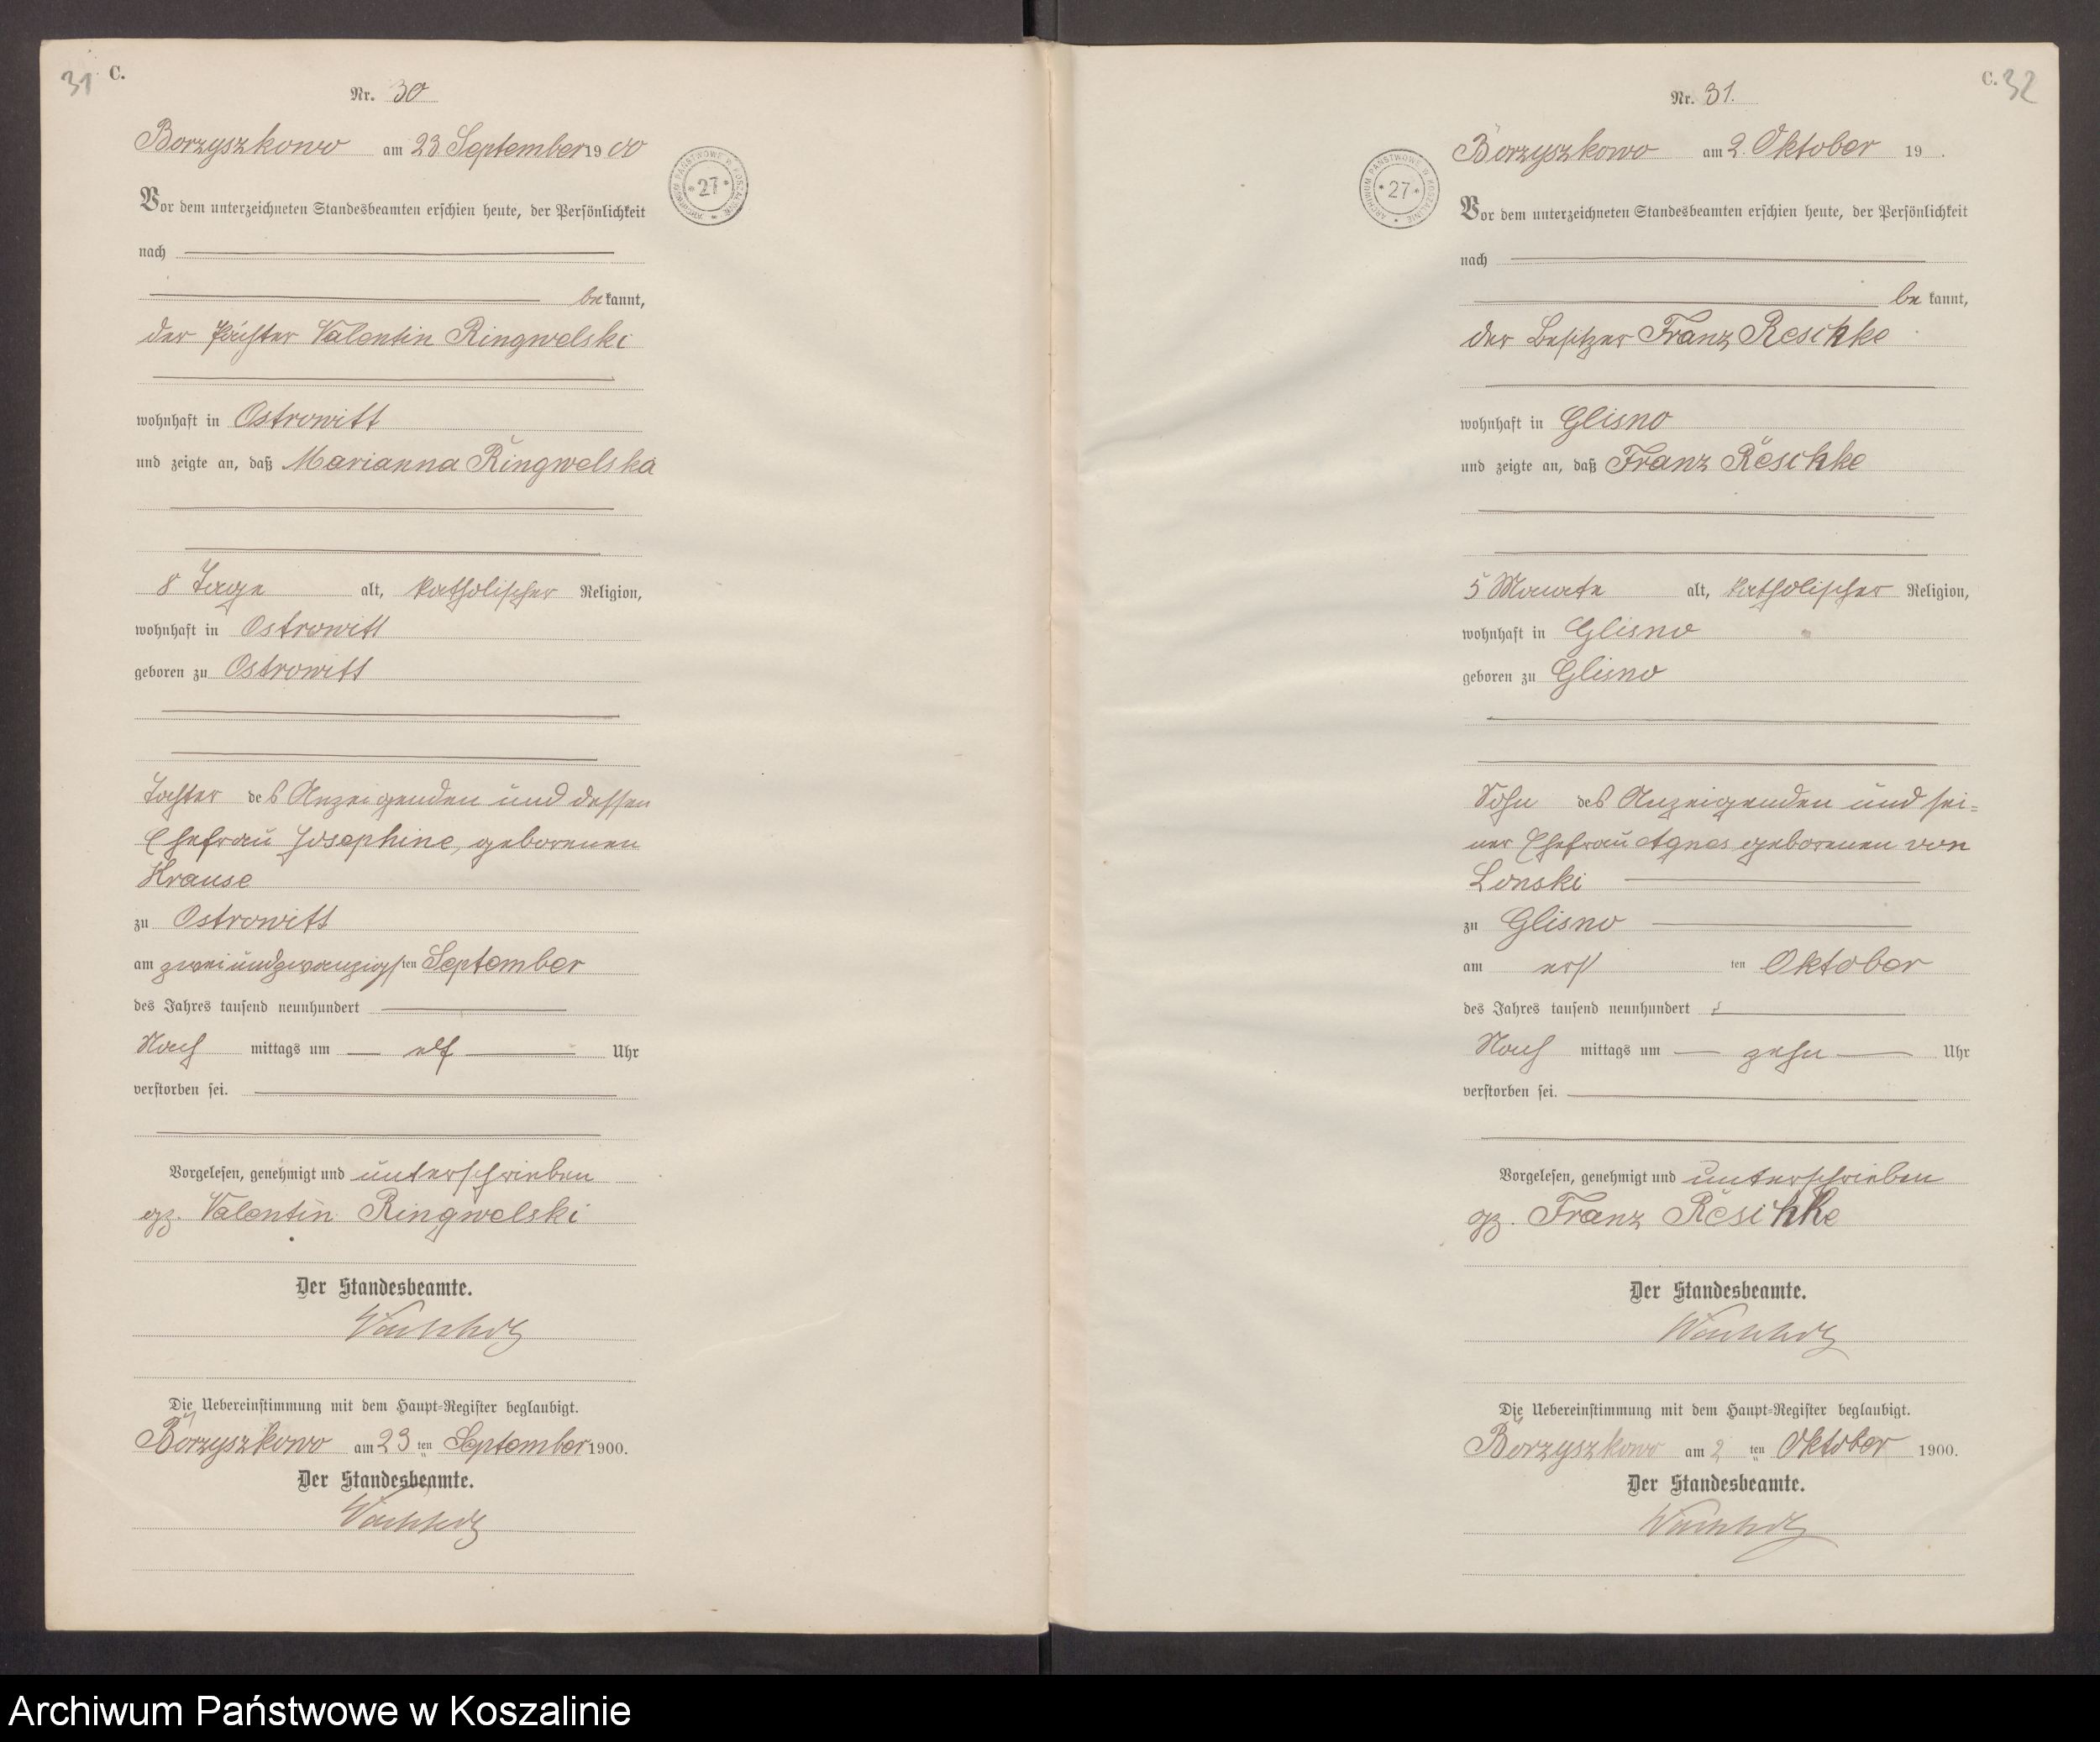 31 C.
Nr. 30
Borzyszkowo am 23. September 1900
ARCHIWUM PAŃSTWOWE W KOSZALINIE * 27 *
Vor dem unterzeichneten Standesbeamten erschien heute, der Persönlichkeit
nach
bekannt,
der Pächter Valentin Ringwelski
wohnhaft in Ostrowitt
und zeigte an, daß Marianna Ringwelska
8 Tage alt, katholischer Religion,
wohnhaft in Ostrowitt
geboren zu Ostrowitt
Tochter des Anzeigenden und dessen
Ehefrau Josephine, geborenen
Krause
zu Ostrowitt
am zweiundzwanzigsten September
des Jahres tausend neunhundert
Nach mittags um elf Uhr
verstorben sei.
Vorgelesen, genehmigt und unterschrieben
gz. Valentin Ringwelski
Der Standesbeamte.
Die Uebereinstimmung mit dem Haupt-Register beglaubigt.
Borzyszkowo am 23ten September 1900.
Der Standesbeamte.
C. 32
Nr. 31.
Borzyszkowo am 2. Oktober 19 .
ARCHIWUM PAŃSTWOWE W KOSZALINIE * 27 *
Vor dem unterzeichneten Standesbeamten erschien heute, der Persönlichkeit
nach
bekannt,
der Besitzer Franz Reschke
wohnhaft in Glisno
und zeigte an, daß Franz Reschke
5 Monate alt, katholischer Religion,
wohnhaft in Glisno
geboren zu Glisno
Sohn des Anzeigenden und sei=
ner Ehefrau Agnes geborenen von
Lonski
zu Glisno
am ersten Oktober
des Jahres tausend neunhundert
Nach mittags um zehn Uhr
verstorben sei.
Vorgelesen, genehmigt und unterschrieben
gz. Franz Reschke
Der Standesbeamte.
Die Uebereinstimmung mit dem Haupt-Register beglaubigt.
Borzyszkowo am 2ten Oktober 1900.
Der Standesbeamte.
Archiwum Państwowe w Koszalinie